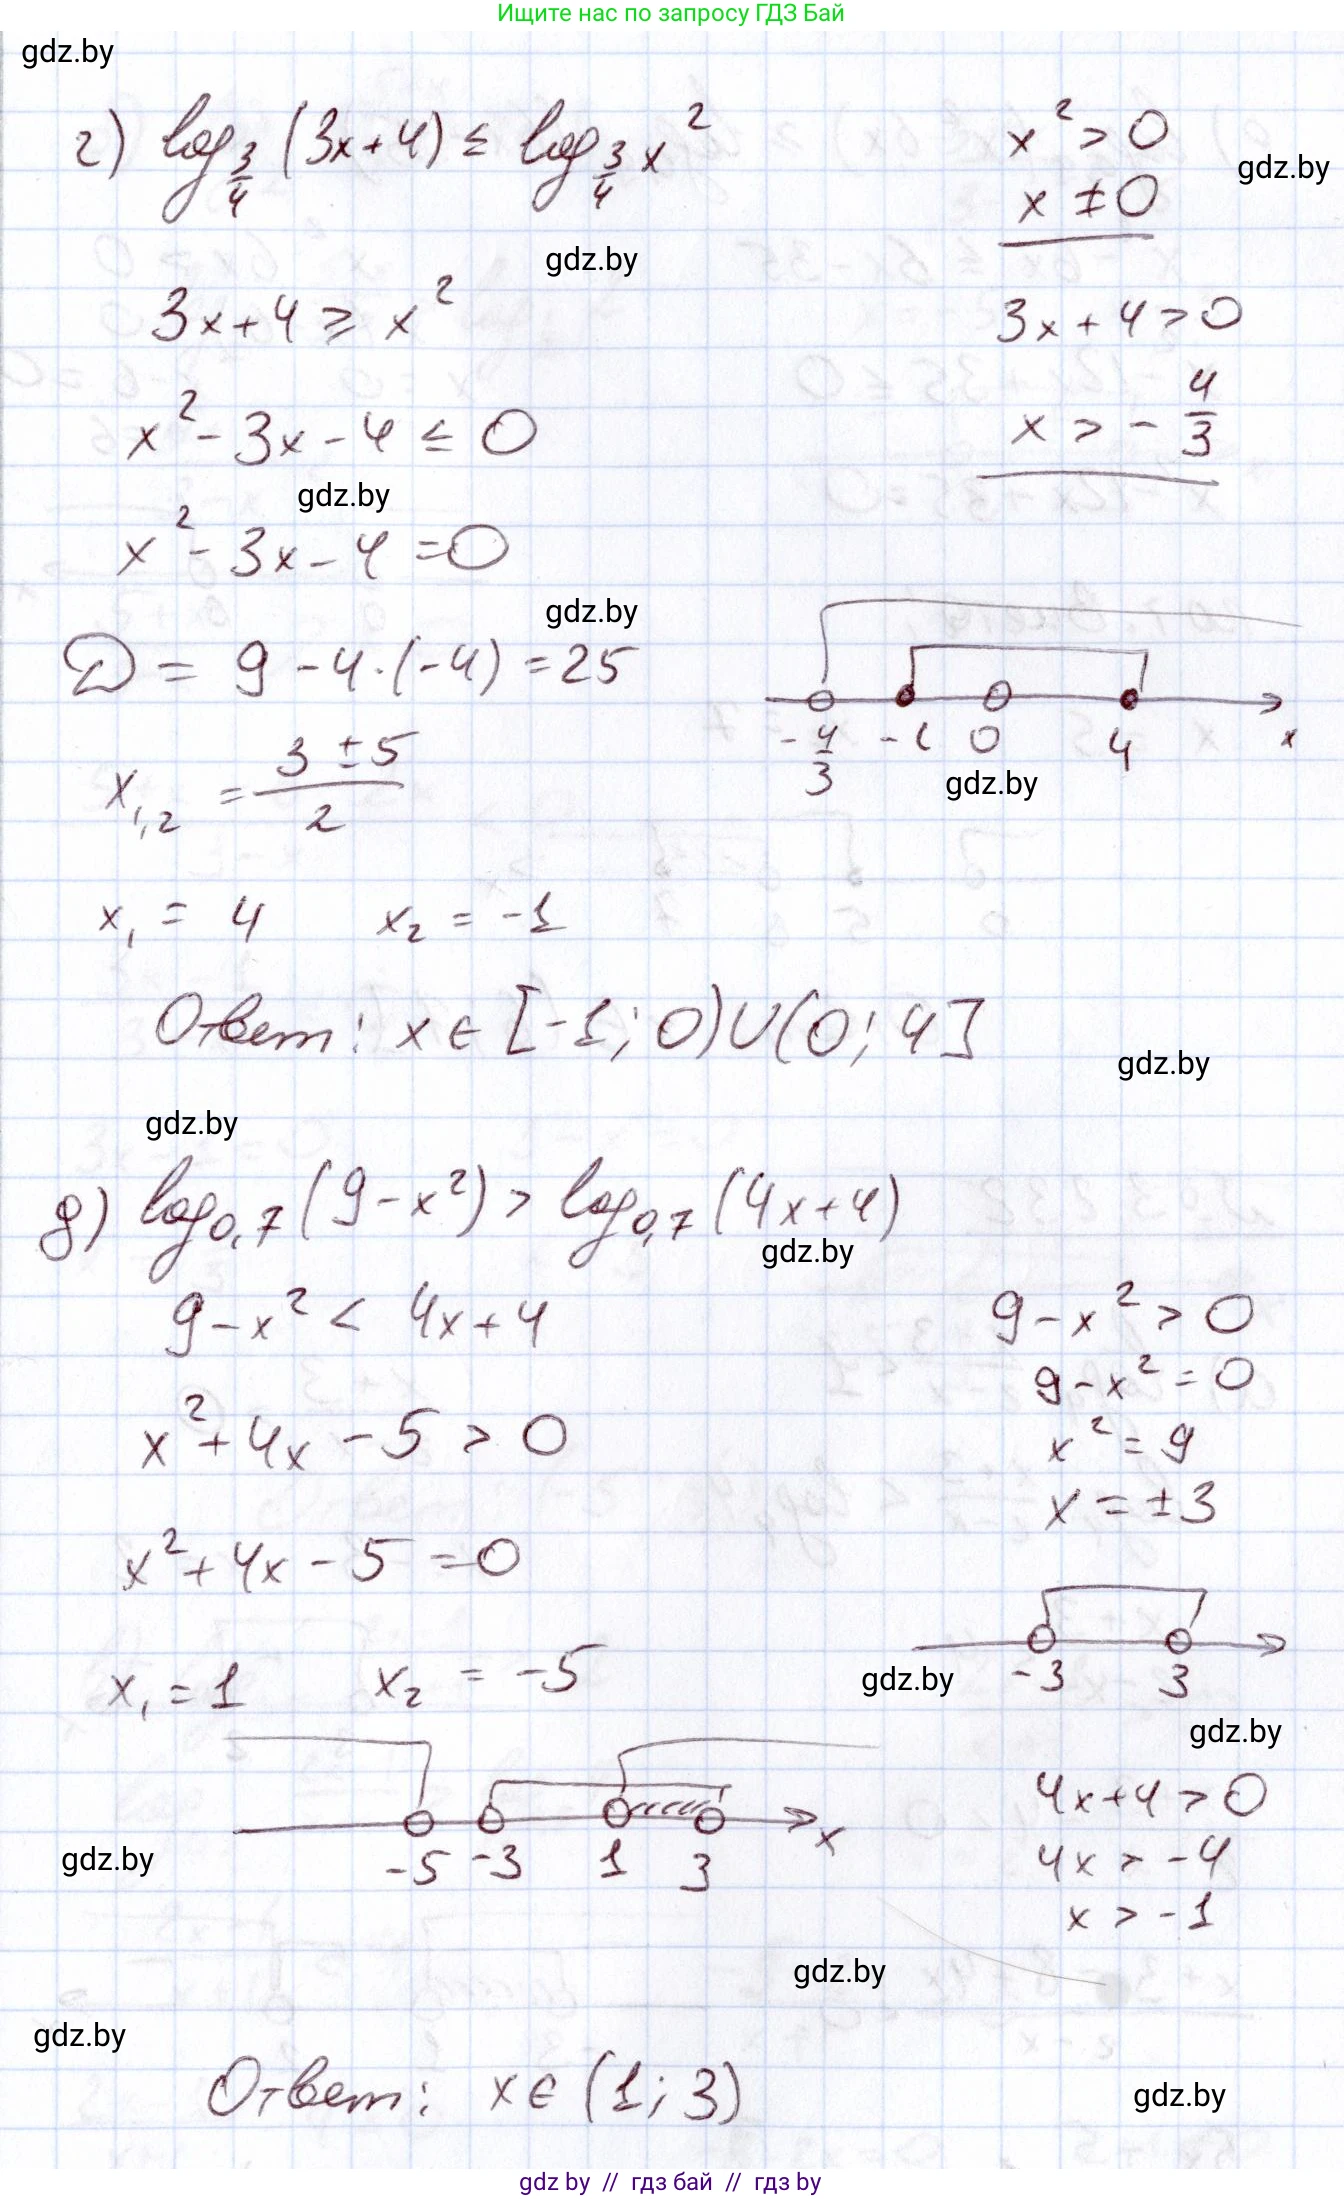 Ищите нас по запросу ГДЗ Бай
gdz.by
г) log_{3/4} (3x+4) ≤ log_{3/4} x²
x² > 0
gdz.by
x ≠ 0
gdz.by
3x+4 ≥ x²
3x+4 > 0
x² - 3x - 4 ≤ 0
x > - 4/3
gdz.by
x² - 3x - 4 = 0
gdz.by
D = 9 - 4·(-4) = 25
x_{1,2} = (3 ± 5)/2
-4/3 -1 0 4 x
gdz.by
x₁ = 4 x₂ = -1
Ответ: x ∈ [-1; 0) ∪ (0; 4]
gdz.by
gdz.by
д) log_{0,7} (9-x²) > log_{0,7} (4x+4)
gdz.by
9-x² < 4x+4
9-x² > 0
9-x² = 0
x² + 4x - 5 > 0
x² = 9
x = ±3
x² + 4x - 5 = 0
x₁ = 1 x₂ = -5
-3 3
gdz.by
gdz.by
4x+4 > 0
-5 -3 1 3 x
gdz.by
4x > -4
x > -1
gdz.by
gdz.by
Ответ: x ∈ (1; 3)
gdz.by
gdz.by // гдз бай // гдз by